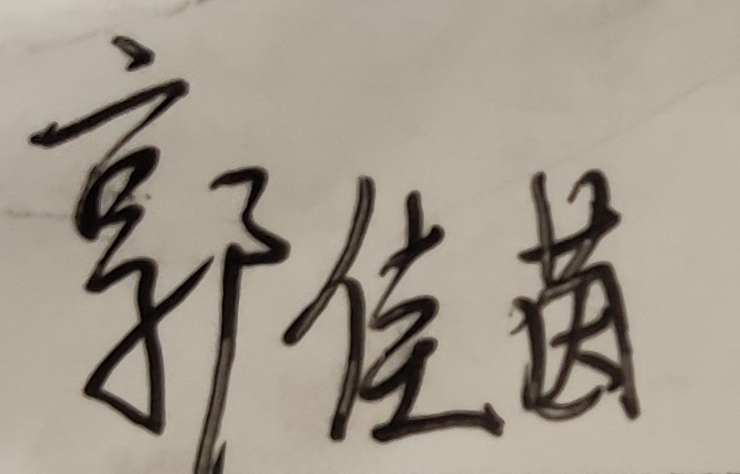 郭佳茵